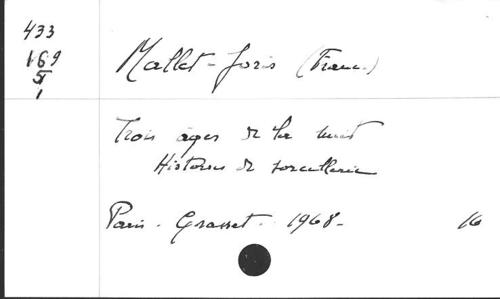 433
169
5
1
Mallet-Joris (Franc.)
Trois âges de la nuit
Histoires de sorcellerie
Paris. Grasset. 1968-
16